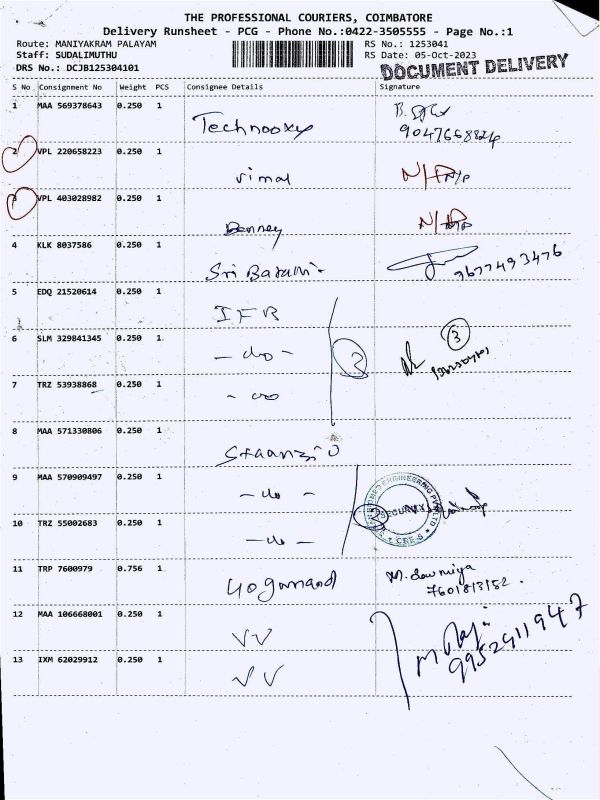 THE PROFESSIONAL COURIERS, COIMBATORE
Delivery Runsheet - PCG - Phone No.:0422-3505555 - Page No.:1
Route: MANIYAKRAM PALAYAM
RS No.: 1253041
Staff: SUDALIMUTHU
RS Date: 05-Oct-2023
DRS No.: DCJB125304101
DOCUMENT DELIVERY
S No Consignment No Weight PCS Consignee Details Signature
1 MAA 569378643 0.250 1 Technooxy
2 VPL 220658223 0.250 1 vimal N/P
3 VPL 403028982 0.250 1 N/P
4 KLK 8037586 0.250 1 9677493476
5 EDQ 21520614 0.250 1 IFR
6 SLM 329841345 0.250 1 - do - 3
7 TRZ 53938868 0.250 1 - do
8 MAA 571330806 0.250 1
9 MAA 570909497 0.250 1 - do - SECURITY
10 TRZ 55002683 0.250 1 - do - CBE-6
11 TRP 7600979 0.756 1 yoganand M. Sowmiya
7601813152.
12 MAA 106668001 0.250 1 VV M Raji
9952911947
13 IXM 62029912 0.250 1 VV